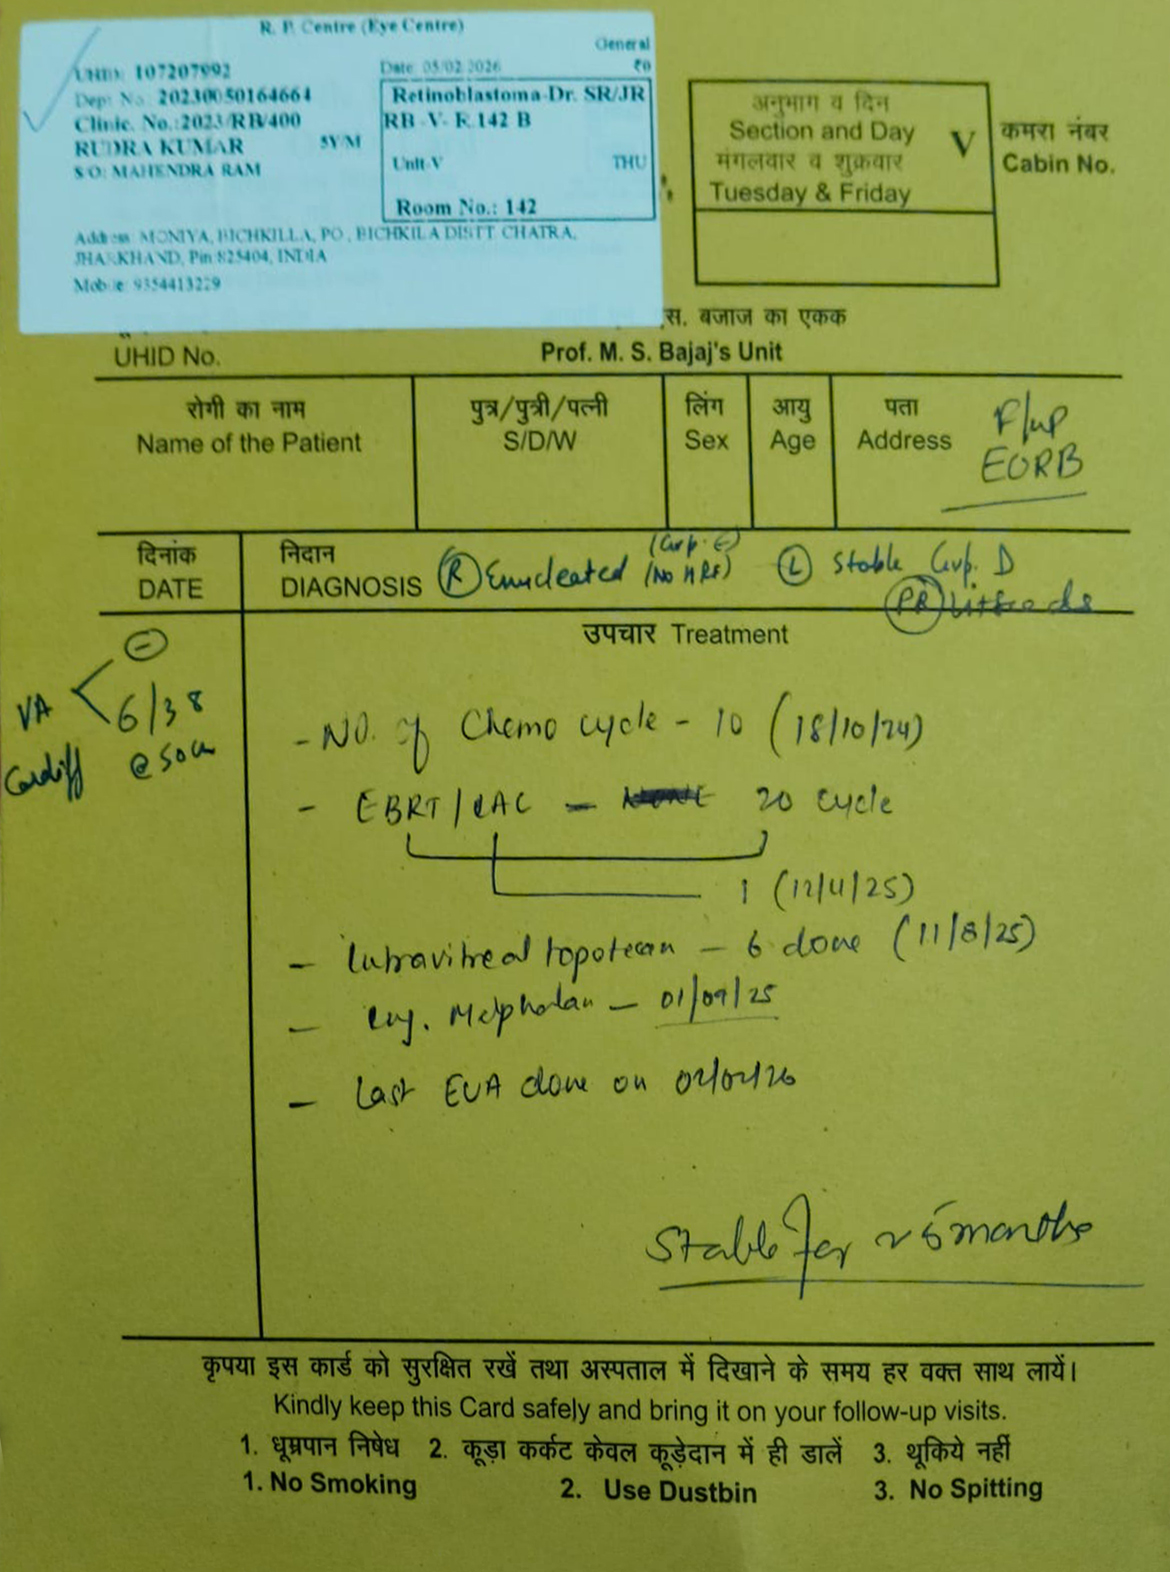 R. P. Centre (Eye Centre)
General
UHID: 107207992 Date: 05/02/2026 ₹0
Dept No: 20230050164664 Retinoblastoma-Dr. SR/JR
Clinic. No.:2023/RB/400 RB -V- R 142 B
RUDRA KUMAR 5Y/M
S/O: MAHENDRA RAM Unit-V THU
Room No.: 142
Address: MONIYA, BICHKILLA, PO , BICHKILA DISTT. CHATRA,
JHARKHAND, Pin:825404, INDIA
Mobile: 9354413229
अनुभाग व दिन
Section and Day V
मंगलवार व शुक्रवार
Tuesday & Friday
कमरा नंबर
Cabin No.
एस. बजाज का एकक
UHID No. Prof. M. S. Bajaj's Unit
रोगी का नाम पुत्र/पुत्री/पत्नी लिंग आयु पता
Name of the Patient S/D/W Sex Age Address
F/up
EORB
दिनांक निदान
DATE DIAGNOSIS (R) Enucleated (Grp. E) (No HRF) (L) Stable Grp. D
(PR)
उपचार Treatment
VA –
6/38
Cardiff @50cm
- NO. of Chemo cycle - 10 (18/10/24)
- EBRT / IAC – 20 cycle
1 (12/4/25)
- Intravitreal topotecan – 6 done (11/8/25)
- Inj. Melphalan – 01/09/25
- Last EUA done on 02/02/26
Stable for ~ 5 months
कृपया इस कार्ड को सुरक्षित रखें तथा अस्पताल में दिखाने के समय हर वक्त साथ लायें।
Kindly keep this Card safely and bring it on your follow-up visits.
1. धूम्रपान निषेध 2. कूड़ा कर्कट केवल कूड़ेदान में ही डालें 3. थूकिये नहीं
1. No Smoking 2. Use Dustbin 3. No Spitting